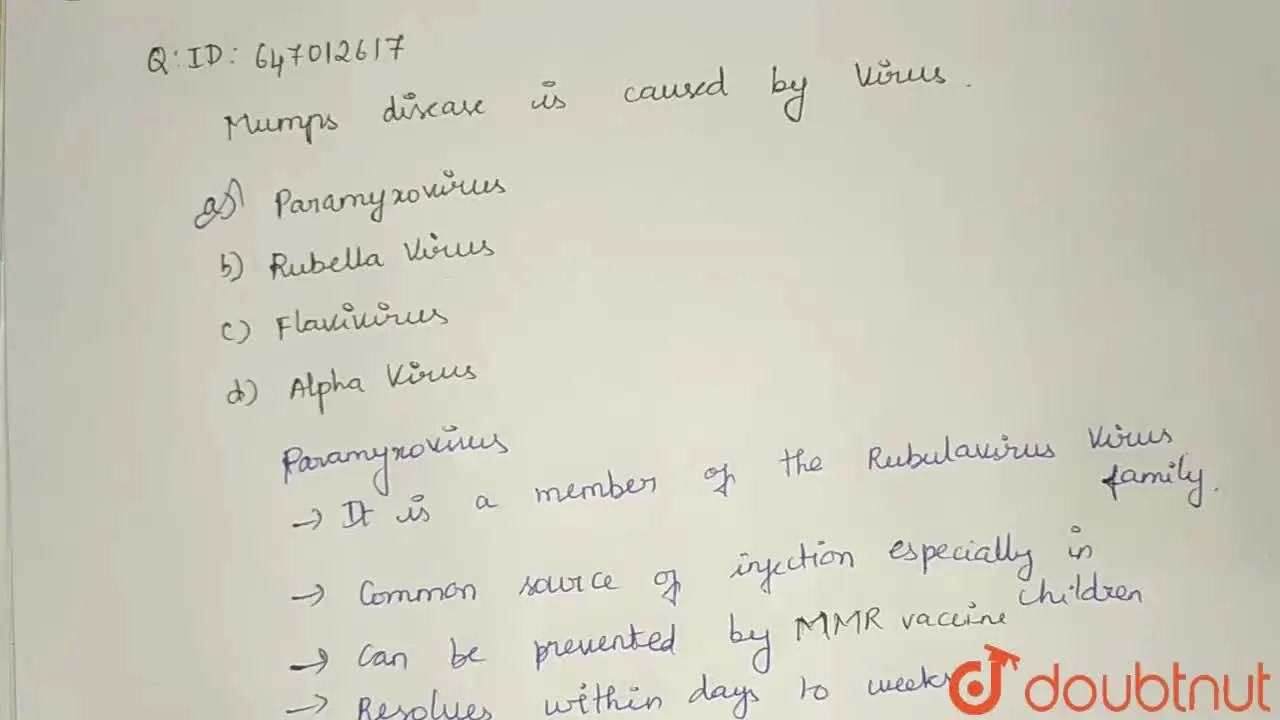 Q:ID: 647012617
Mumps disease is caused by virus.
a) Paramyxovirus
b) Rubella Virus
c) Flavivirus
d) Alpha Virus
Paramyxovirus
→ It is a member of the Rubulavirus Virus
family.
→ Common source of injection especially in
children
→ Can be prevented by MMR vaccine
→ Resolves within days to weeks
doubtnut